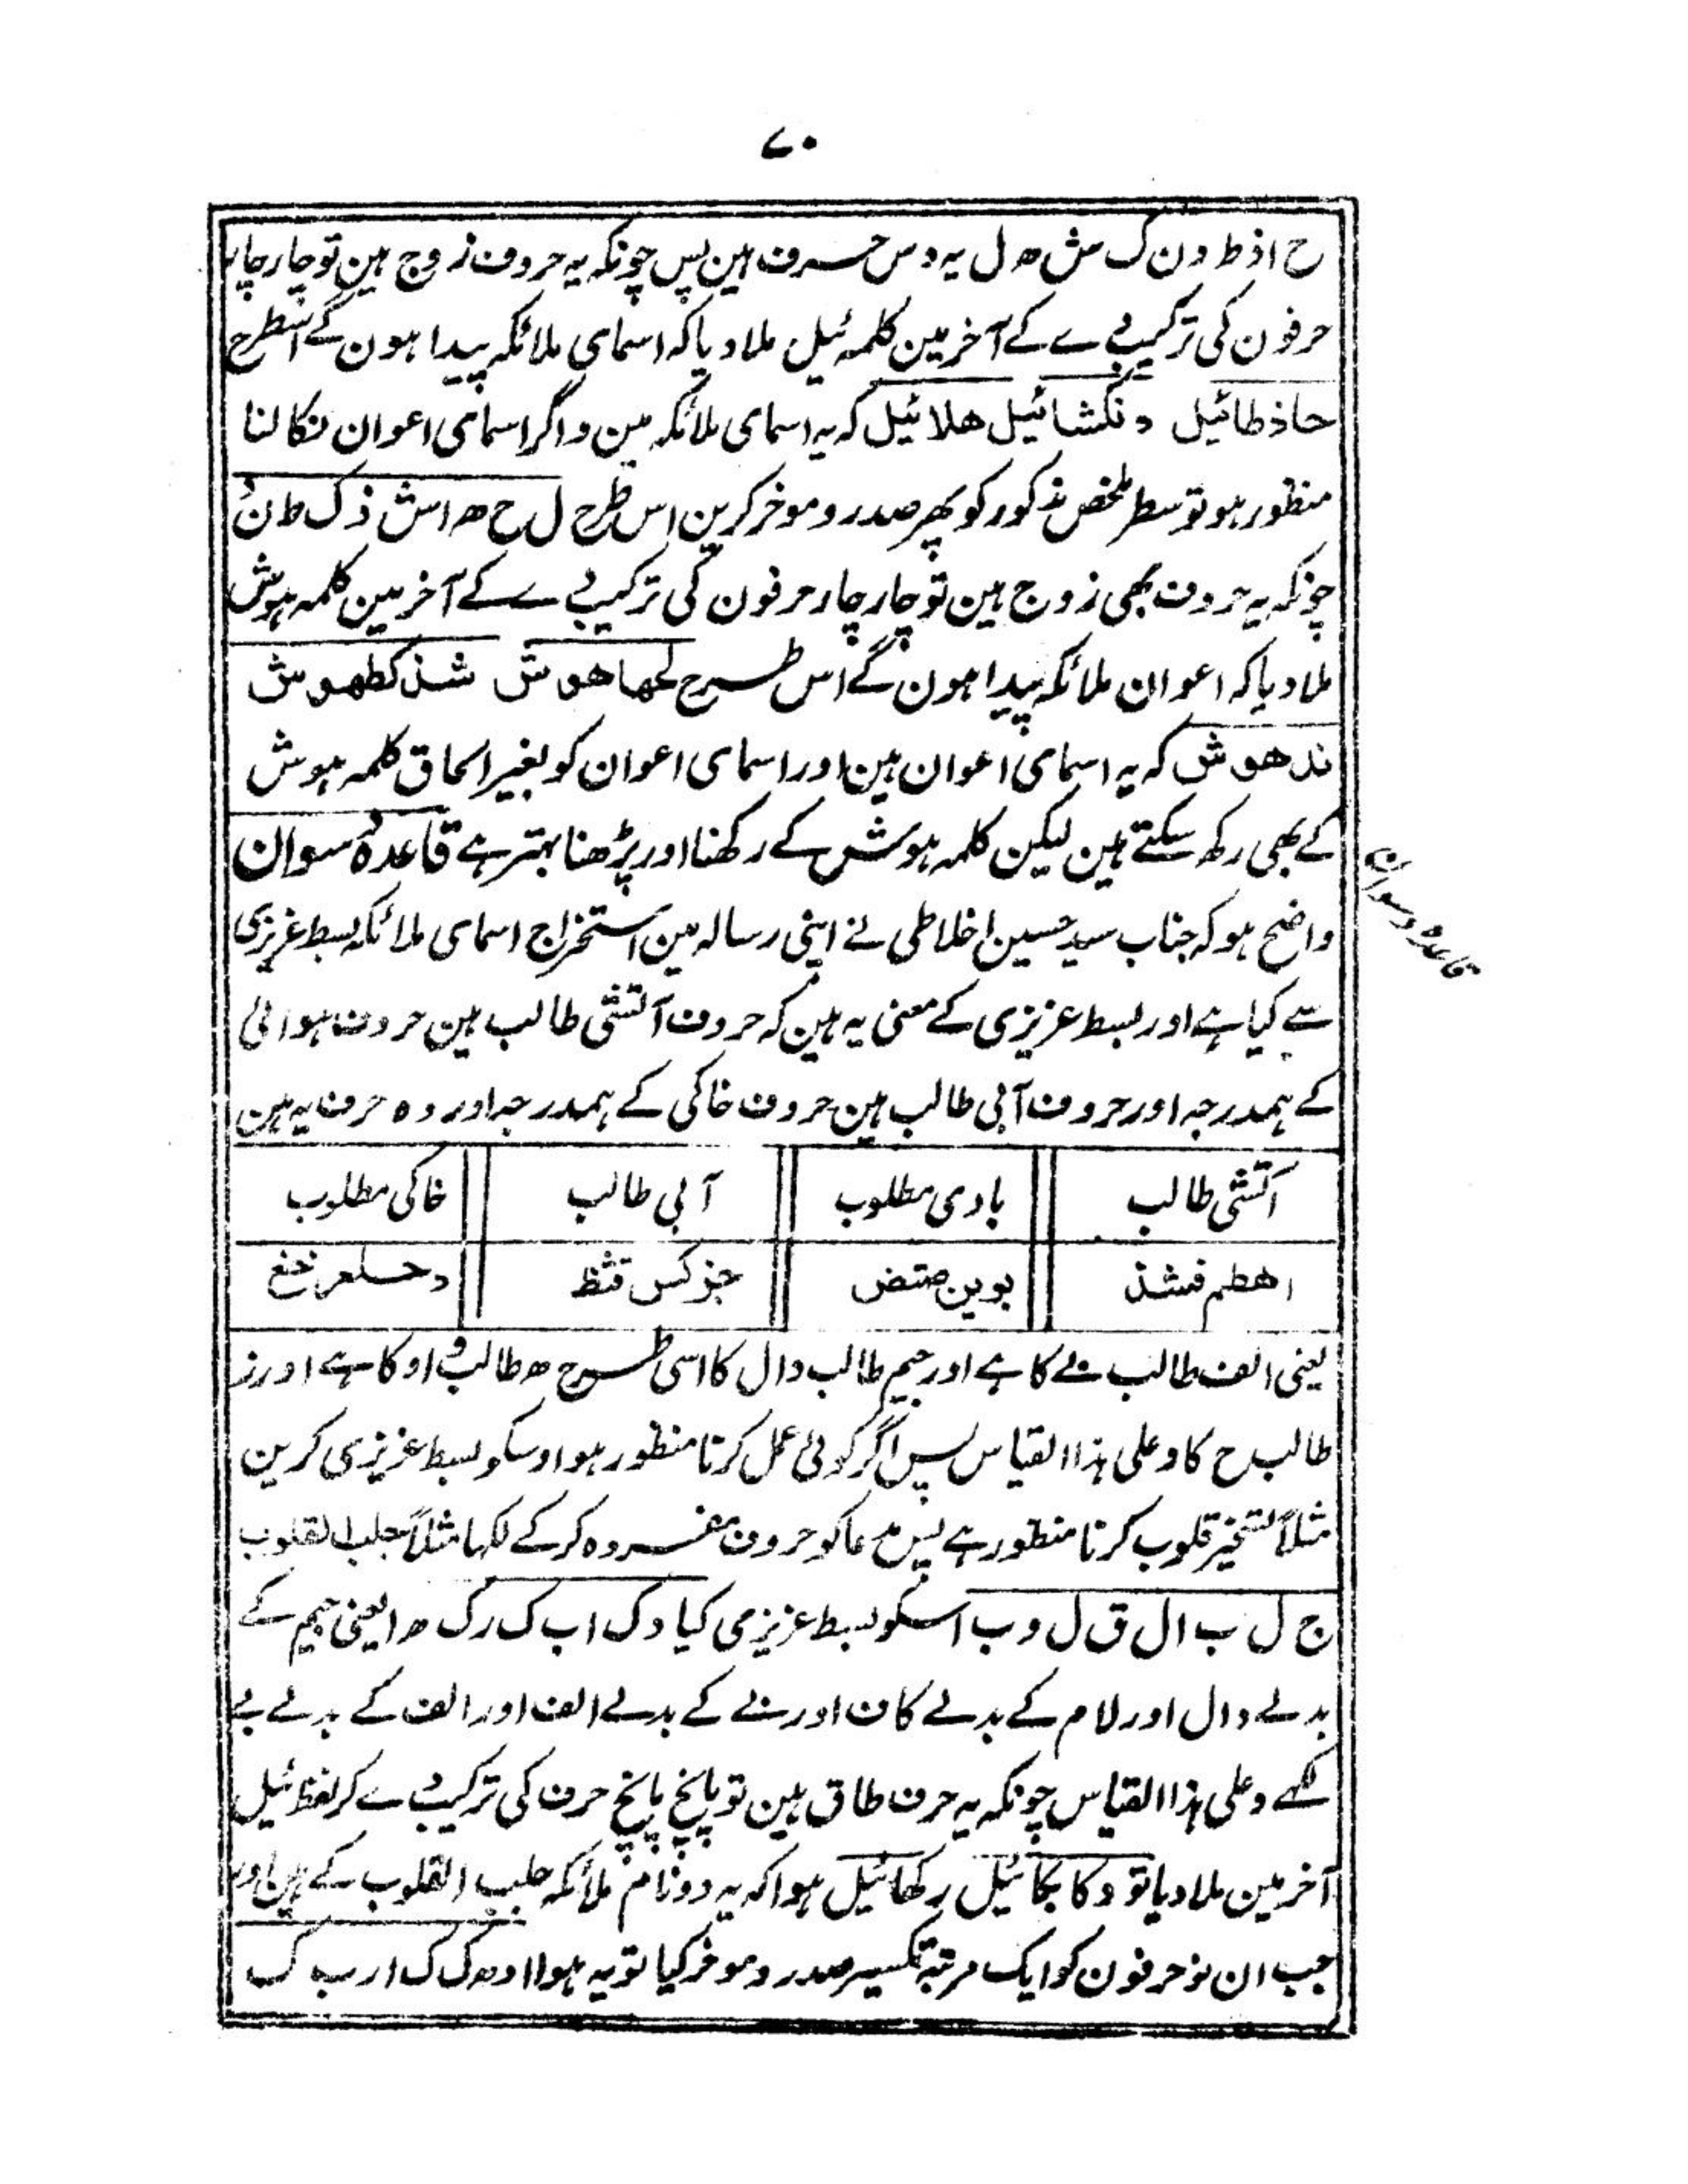 ۷۰
ح ا ذ ط د ن ک ش ھ ل یہ دس حرف ہین پس چونکہ یہ حروف زوج ہین تو چار چار
حرفون کی ترکیب دے کے آخر مین کلمہ ئیل ملا دیا کہ اسمای ملائکہ پیدا ہون گے اسطرح
حاذطائیل دنکشائیل ھلائیل کہ یہ اسمای ملائکہ ہین و اگر اسمای اعوان نکالنا
منظور ہو تو سطر ملخص مذکور کو پھر صدر و موخر کرین اس طرح ل ح ھ ا ش ذ ک ط ن د
چونکہ یہ حروف بھی زوج ہین تو چار چار حرفون کی ترکیب دے کے آخر مین کلمہ ہوش
ملا دیا کہ اعوان ملائکہ پیدا ہون گے اس طرح لحھاھوش شذکطھوش
ندھوش کہ یہ اسمای اعوان ہین اور اسمای اعوان کو بغیر الحاق کلمہ ہوش
کے بھی رکھ سکتے ہین لیکن کلمہ ہوش کے رکھنا اور پڑھنا بہتر ہے قاعدہ دسوان
قاعدہ دسوان
واضح ہو کہ جناب سید حسین اخلاطی نے اپنی رسالہ مین استخراج اسمای ملائکہ بسط عزیزی
سے کیا ہے اور بسط عزیزی کے معنی یہ ہین کہ حروف آتشی طالب ہین حروف ہوائی
کے ہمدرجہ اور حروف آبی طالب ہین حروف خاکی کے ہمدرجہ اور وہ حرف یہ ہین
آتشی طالب بادی مطلوب آبی طالب خاکی مطلوب
اھطم فشذ بوین صتض جزکس قثظ دحلعرخغ
یعنی الف طالب بے کا ہے اور جیم طالب دال کا اسی طرح ھ طالب واو کا ہے اور ز
طالب ح کا و علی ہذا القیاس پس اگر کوئی عمل کرنا منظور ہو اوسکو بسط عزیزی کرین
مثلاً تسخیر قلوب کرنا منظور ہے پس مدعا کو حروف مفردہ کر کے لکھا مثلاً جلب القلوب
ج ل ب ا ل ق ل و ب اسکو بسط عزیزی کیا د ک ا ب ک ر ک ھ ا یعنی جیم کے
بدلے دال اور لام کے بدلے کاف اور بے کے بدلے الف اور الف کے بدلے بے
لکھے و علی ہذا القیاس چونکہ یہ حرف طاق ہین تو پانچ پانچ حرف کی ترکیب دے کر لفظ ئیل
آخر مین ملا دیا تو دکابکائیل رکھائیل ہوا کہ یہ دو نام ملائکہ جلب القلوب کے ہین اور
جب ان نو حرفون کو ایک مرتبہ تکسیر صدر و موخر کیا تو یہ ہوا ا د ھ ک ک ا ر ب ک